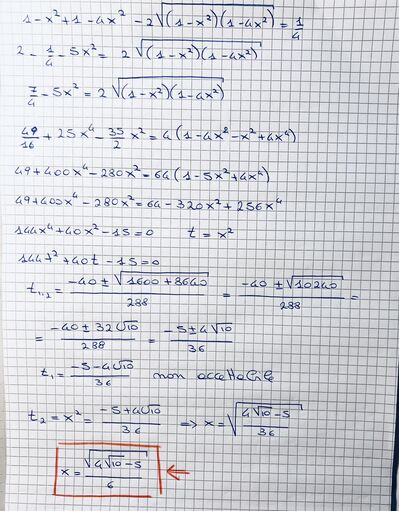 1-x²+1-4x² -2√(1-x²)(1-4x²) = 1/4
2 - 1/4 - 5x² = 2√(1-x²)(1-4x²)
7/4 - 5x² = 2√(1-x²)(1-4x²)
49/16 + 25x⁴ - 35/2 x² = 4(1-4x²-x²+4x⁴)
49+400x⁴-280x² = 64(1-5x²+4x⁴)
49+400x⁴-280x² = 64-320x²+256x⁴
144x⁴+40x²-15=0 t=x²
144t²+40t-15=0
t₁,₂ = (-40±√1600+8640)/288 = (-40±√10240)/288 =
= (-40±32√10)/288 = (-5±4√10)/36
t₁ = (-5-4√10)/36 non accettabile
t₂ = x² = (-5+4√10)/36 => x = √(4√10-5)/36
x = √(4√10-5)/6 ←